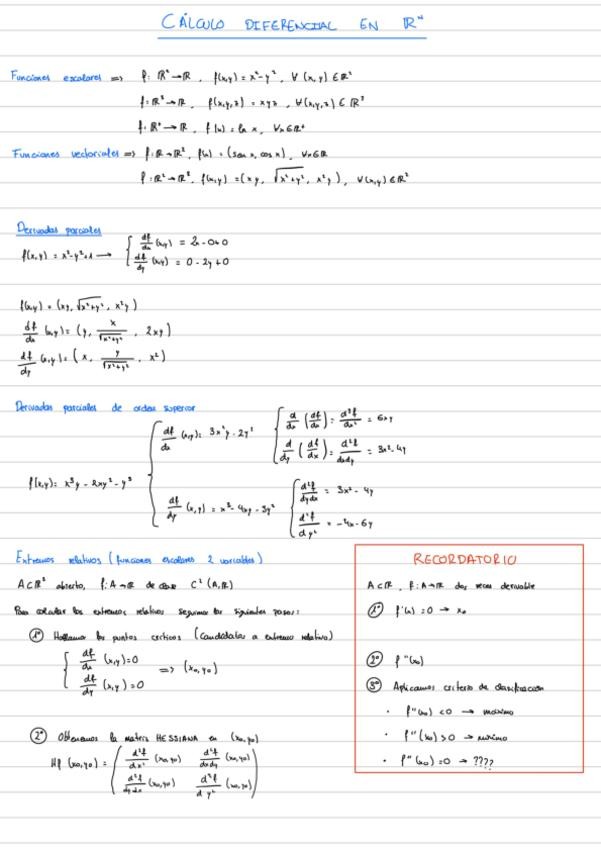 CÁLCULO DIFERENCIAL EN ℝⁿ
Funciones escalares => f: ℝ² → ℝ, f(x,y) = x² - y², ∀ (x,y) ∈ ℝ²
f: ℝ³ → ℝ, f(x,y,z) = xyz, ∀(x,y,z) ∈ ℝ³
f: ℝ⁺ → ℝ, f(x) = ln x, ∀x∈ℝ⁺
Funciones vectoriales => f: ℝ → ℝ², f(x) = (sen x, cos x), ∀x∈ℝ
f: ℝ² → ℝ³, f(x,y) = (xy, √(x²+y²), x²y), ∀(x,y) ∈ ℝ²
Derivadas parciales
f(x,y) = x² - y² + 1 → { df/dx (x,y) = 2x - 0 + 0
df/dy (x,y) = 0 - 2y + 0
f(x,y) = (xy, √(x²+y²), x²y)
df/dx (x,y) = (y, x/√(x²+y²), 2xy)
df/dy (x,y) = (x, y/√(x²+y²), x²)
Derivadas parciales de orden superior
f(x,y) = x³y - 2xy² - y³
df/dx (x,y) = 3x²y - 2y²
d/dx (df/dx) = d²f/dx² = 6xy
d/dy (df/dx) = d²f/dxdy = 3x² - 4y
df/dy (x,y) = x³ - 4xy - 3y²
d²f/dydx = 3x² - 4y
d²f/dy² = -4x - 6y
Extremos relativos (funciones escalares 2 variables)
A⊂ℝ² abierto, f: A → ℝ de clase C²(A,ℝ)
Para calcular los extremos relativos seguimos los siguientes pasos:
1º Hallamos los puntos críticos (candidatos a extremo relativo)
{ df/dx (x,y) = 0
df/dy (x,y) = 0 => (x₀,y₀)
2º Obtenemos la matriz HESSIANA en (x₀,y₀)
Hf (x₀,y₀) = ( d²f/dx² (x₀,y₀) d²f/dxdy (x₀,y₀)
d²f/dydx (x₀,y₀) d²f/dy² (x₀,y₀) )
RECORDATORIO
A⊂ℝ, f: A→ℝ dos veces derivable
1º f'(x) = 0 → x₀
2º f''(x₀)
3º Aplicamos criterio de clasificación
· f''(x₀) < 0 → máximo
· f''(x₀) > 0 → mínimo
· f''(x₀) = 0 → ????